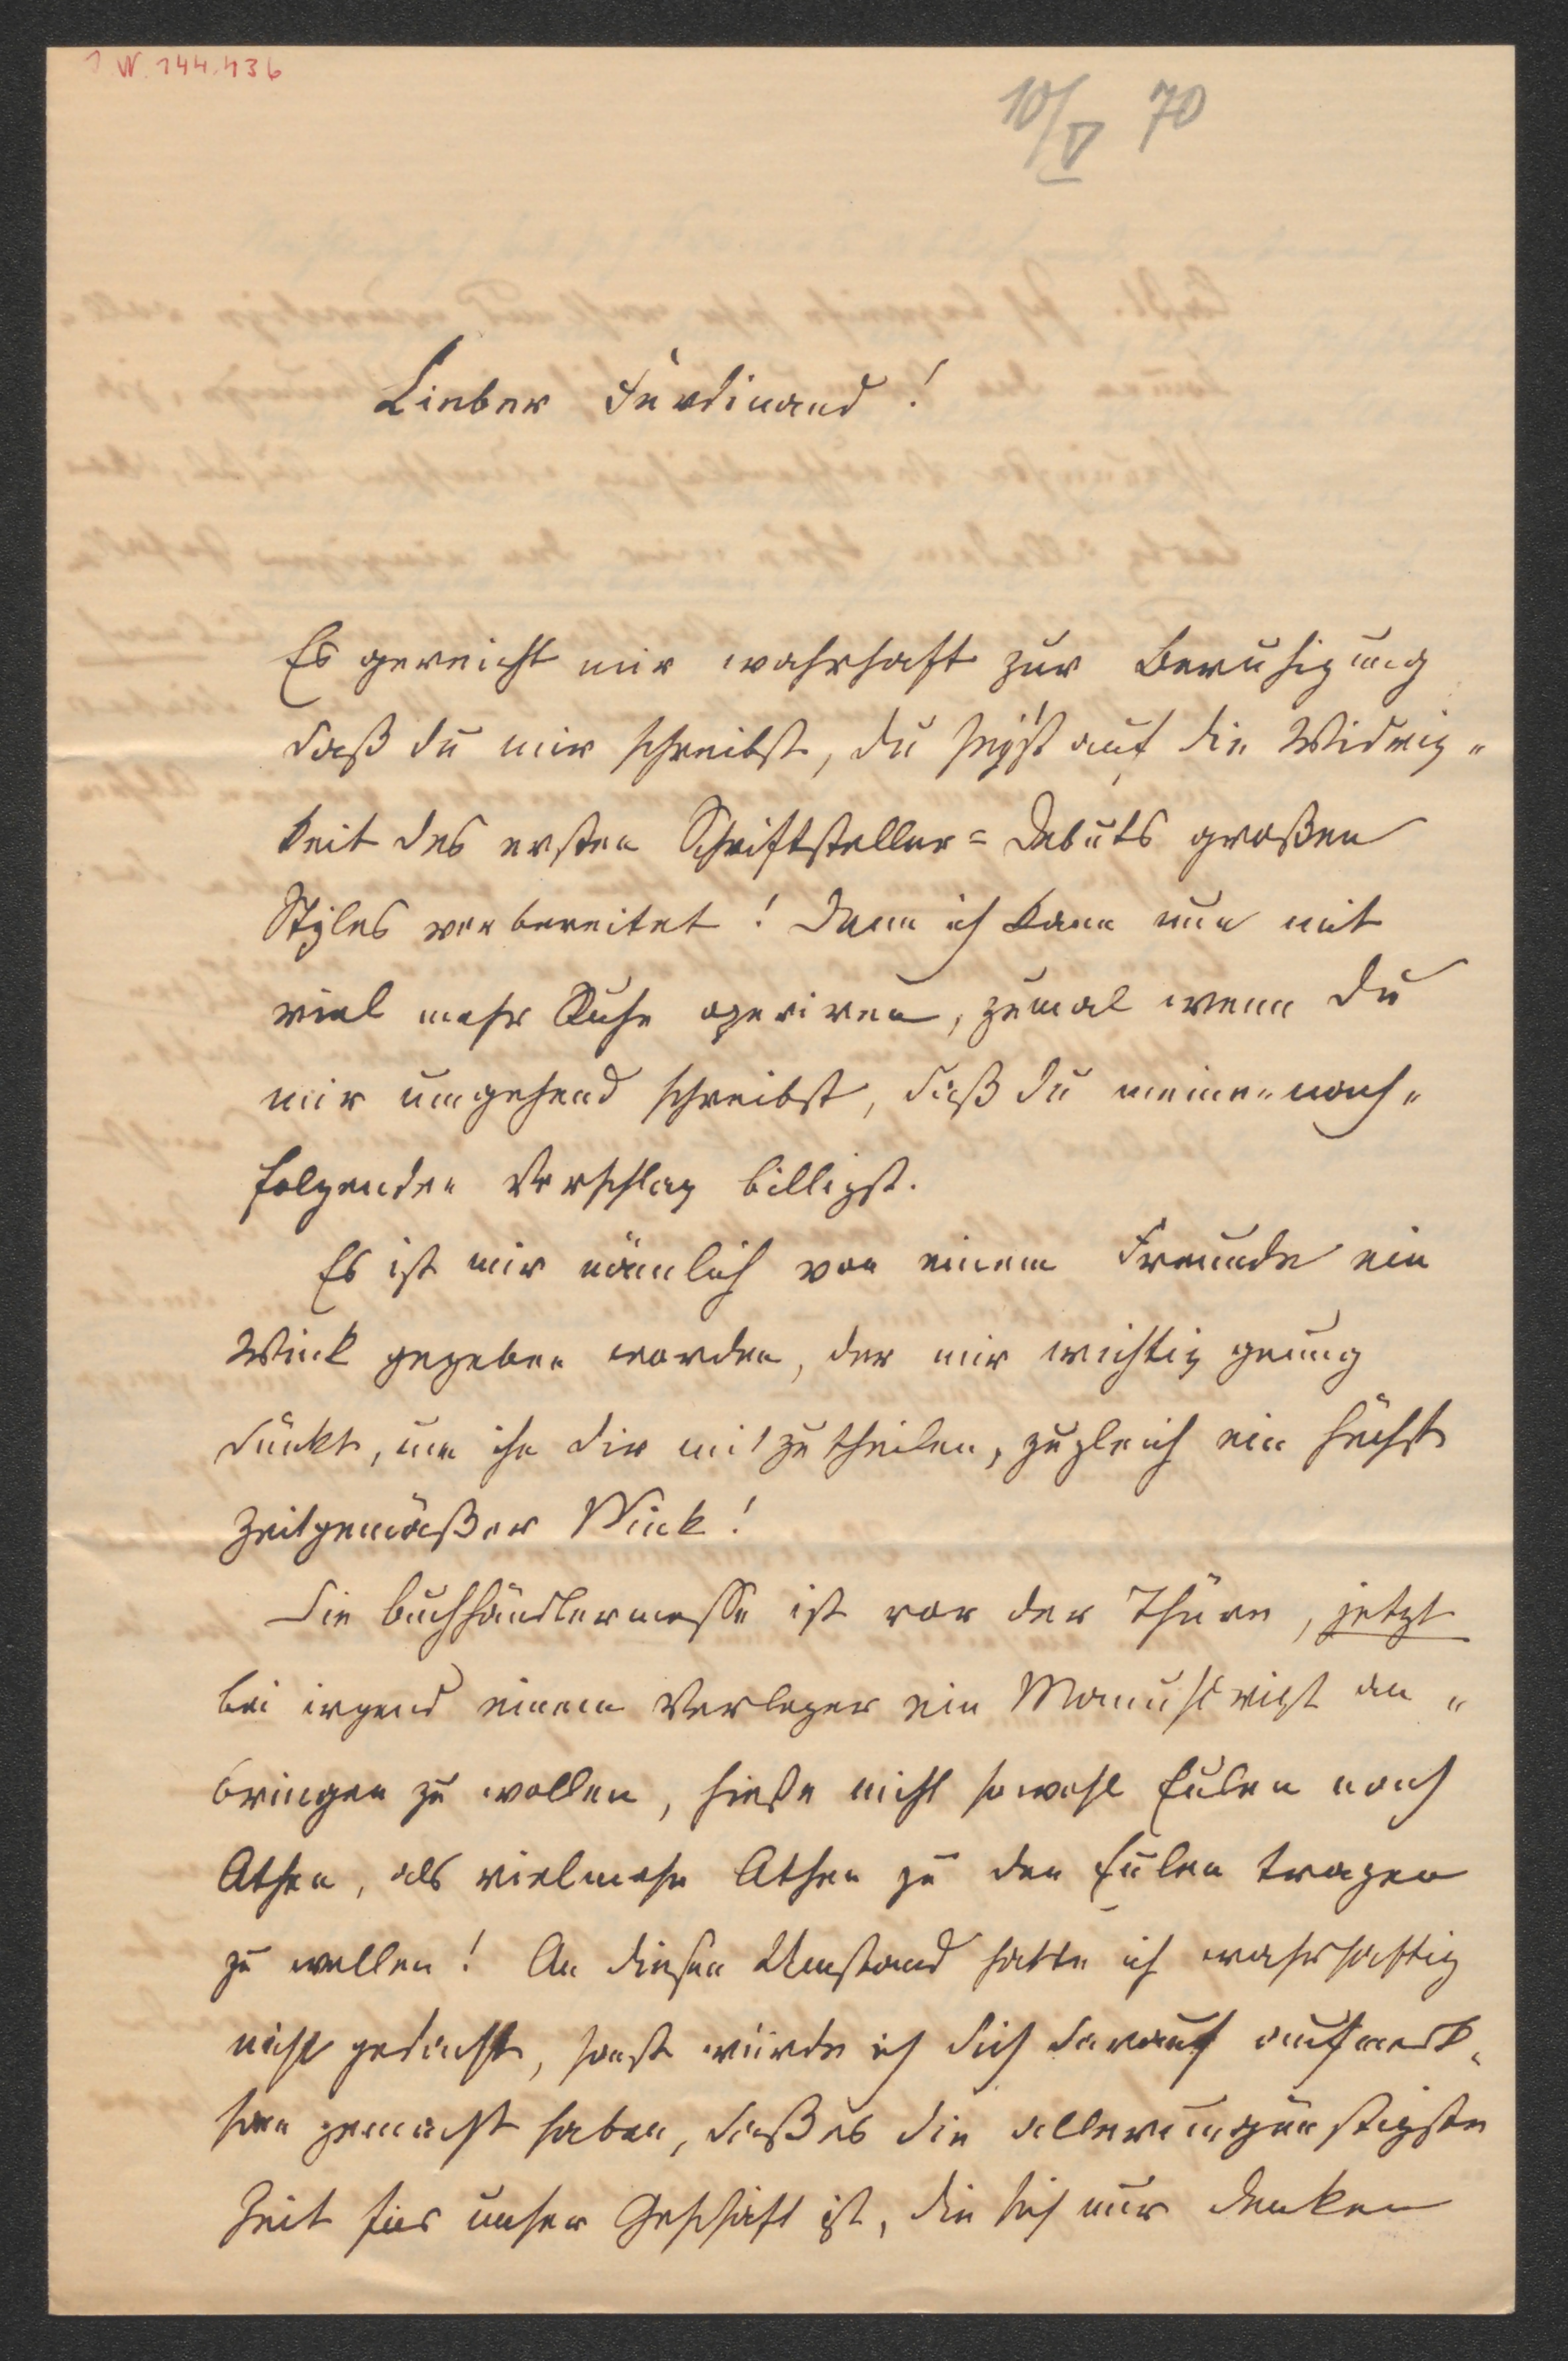 I.N. 144.436
10/V 70
Lieber Ferdinand!
Es gereicht mir wahrhaft zur Beruhigung
daß du mir schreibst, du seyst auf die Widrig„
keit des ersten Schriftsteller=Debuts großen
Styles vorbereitet! Denn ich kann nun mit
viel mehr Ruhe operiren, zumal wenn Du
mir umgehend schreibst, daß du meinen nach„
folgenden Vorschlag billigst.
Es ist mir nämlich von einem Freunde ein
Wink gegeben worden, der mir wichtig genug
dünkt, um ihn dir mitzutheilen, zugleich ein höchst
zeitgemäßer Wink!
Die Buchhändlermesse ist vor der Thüre, jetzt
bei irgend einem Verleger ein Manuskript an„
bringen zu wollen, hieße nicht sowohl Eulen nach
Athen, als vielmehr Athen zu den Eulen tragen
zu wollen! An diesen Umstand hatte ich wahrhaftig
nicht gedacht, sonst würde ich dich darauf aufmerk„
sam gemacht haben, daß es die allerungünstigste
Zeit für unser Geschäft ist, die sich nur denken